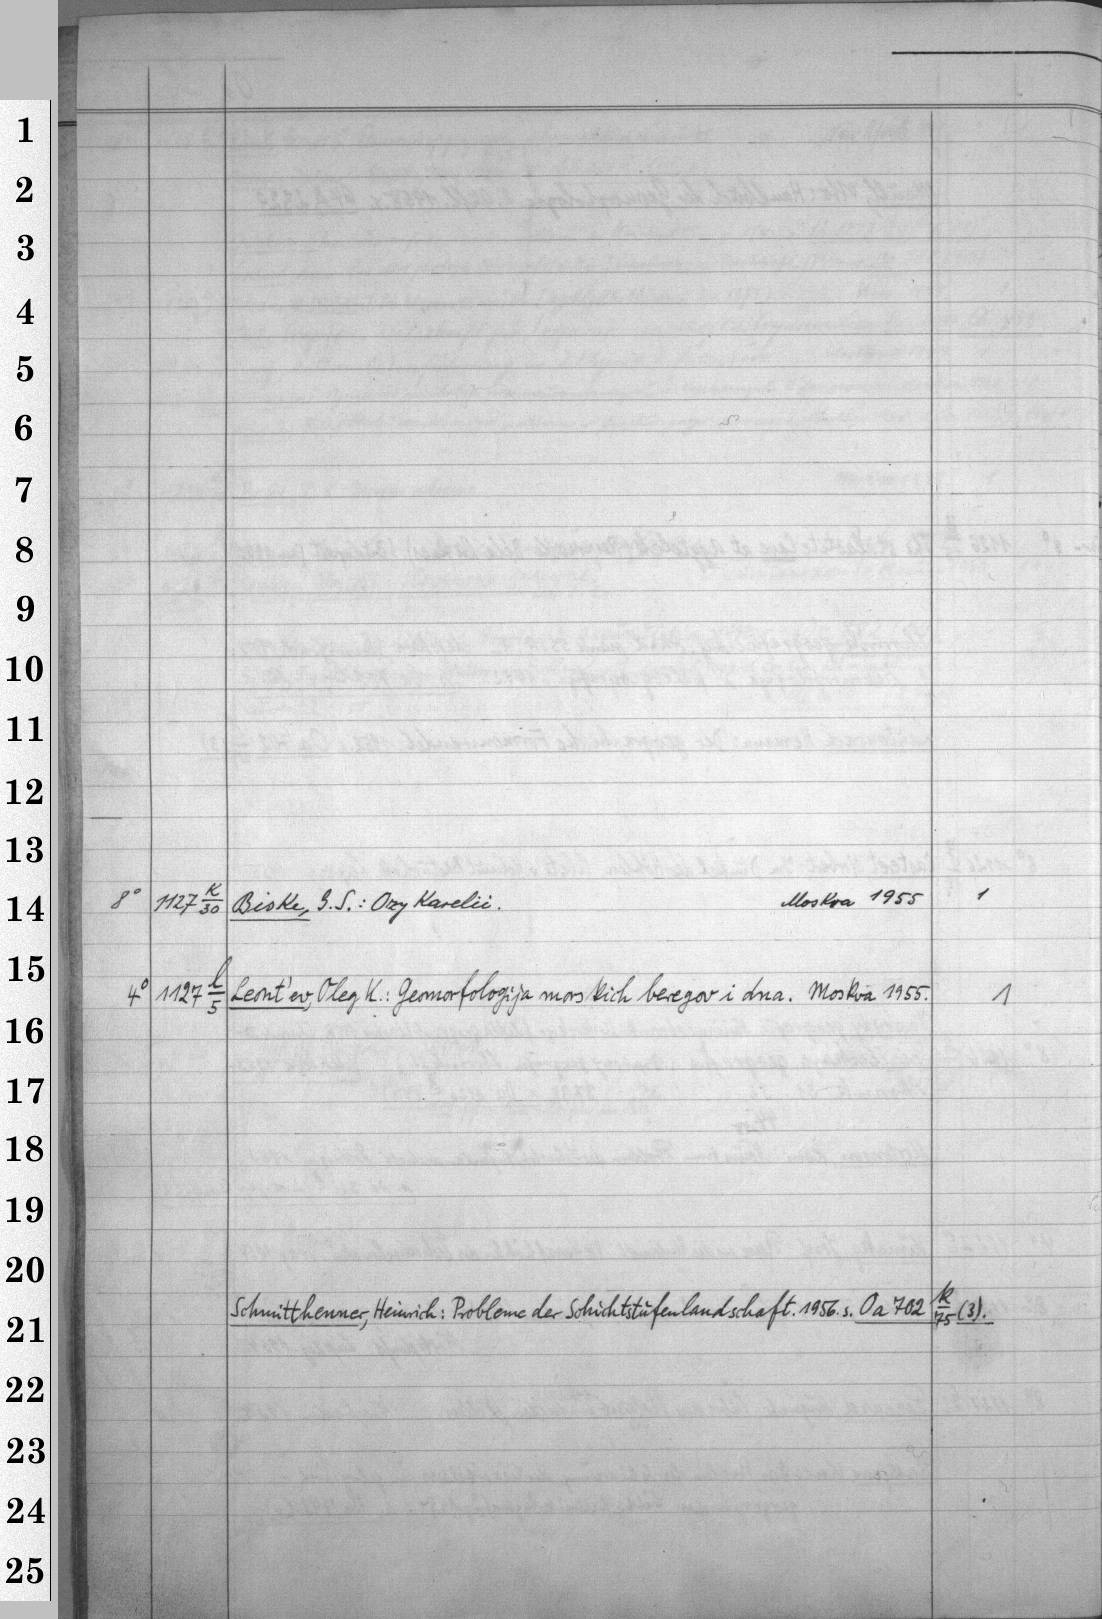 1
2
3
4
5
6
7
8
9
10
11
12
13
14
15
16
17
18
19
20
21
22
23
24
25
8° 1127 K/30 Biske, G.S.: Ozy Karelii. Moskva 1955 1
4° 1127 l/5 Leont'ev, Oleg K.: Geomorfologija morskich beregov i dna. Moskva 1955. 1
Schmitthenner, Heinrich: Probleme der Schichtstufenlandschaft. 1956. s. Oa 702 k/75 (3).